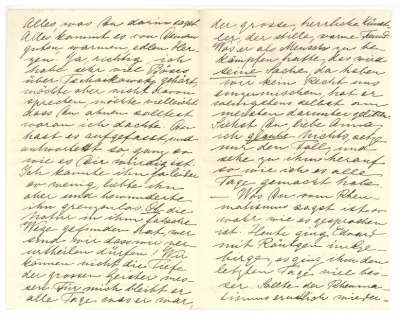 Alles was Du darin sagst
Alles kommt es von Deinem
guten warmen, edlen Her-
zen. Ja richtig, ich
habe sehr viel Böses
über Tschaikowsky gehört,
möchte aber nicht davon
sprechen, möchte vielleicht
dass Du ahnen solltest
woran ich dachte. Du
hast es aufgefasst, und
antwortest so ganz, so
wie es Dir würdig ist.
Ich kannte ihn leider
so wenig, liebte ihn
aber und bewunderte
ihn grenzenlos. Ob die
Natur in ihm falsche
Wege gefunden hat, wer
sind wir dass wir ver-
urtheilen dürfen! Wir
können nicht die Tiefe
der grossen Geister mes-
sen. Für mich bleibt er
alle Tage was er war,
der grosse, herrliche Künst-
ler, der stille, warme Freund.
Was er als Mensch zu be-
kämpfen hatte, das war
seine Sache, da haben
wir kein Recht uns
einzumischen, hat er
wenigstens selbst am
meisten darunter gelitten.
ich glaube Nichts, setze
mir den Fall, und
sehe zu ihm herauf
so wie ich es alle
Tage gemacht habe.
— Was Du vom Rheu-
matismus sagst ist so
wahr wie es gesprochen
ist. Heute ging Edvard
mit Röntgen im Ge-
birge, es ging ihm den
letzten Tage viel bes-
ser. Sollte der Rheuma-
tismus ernstlich wieder-